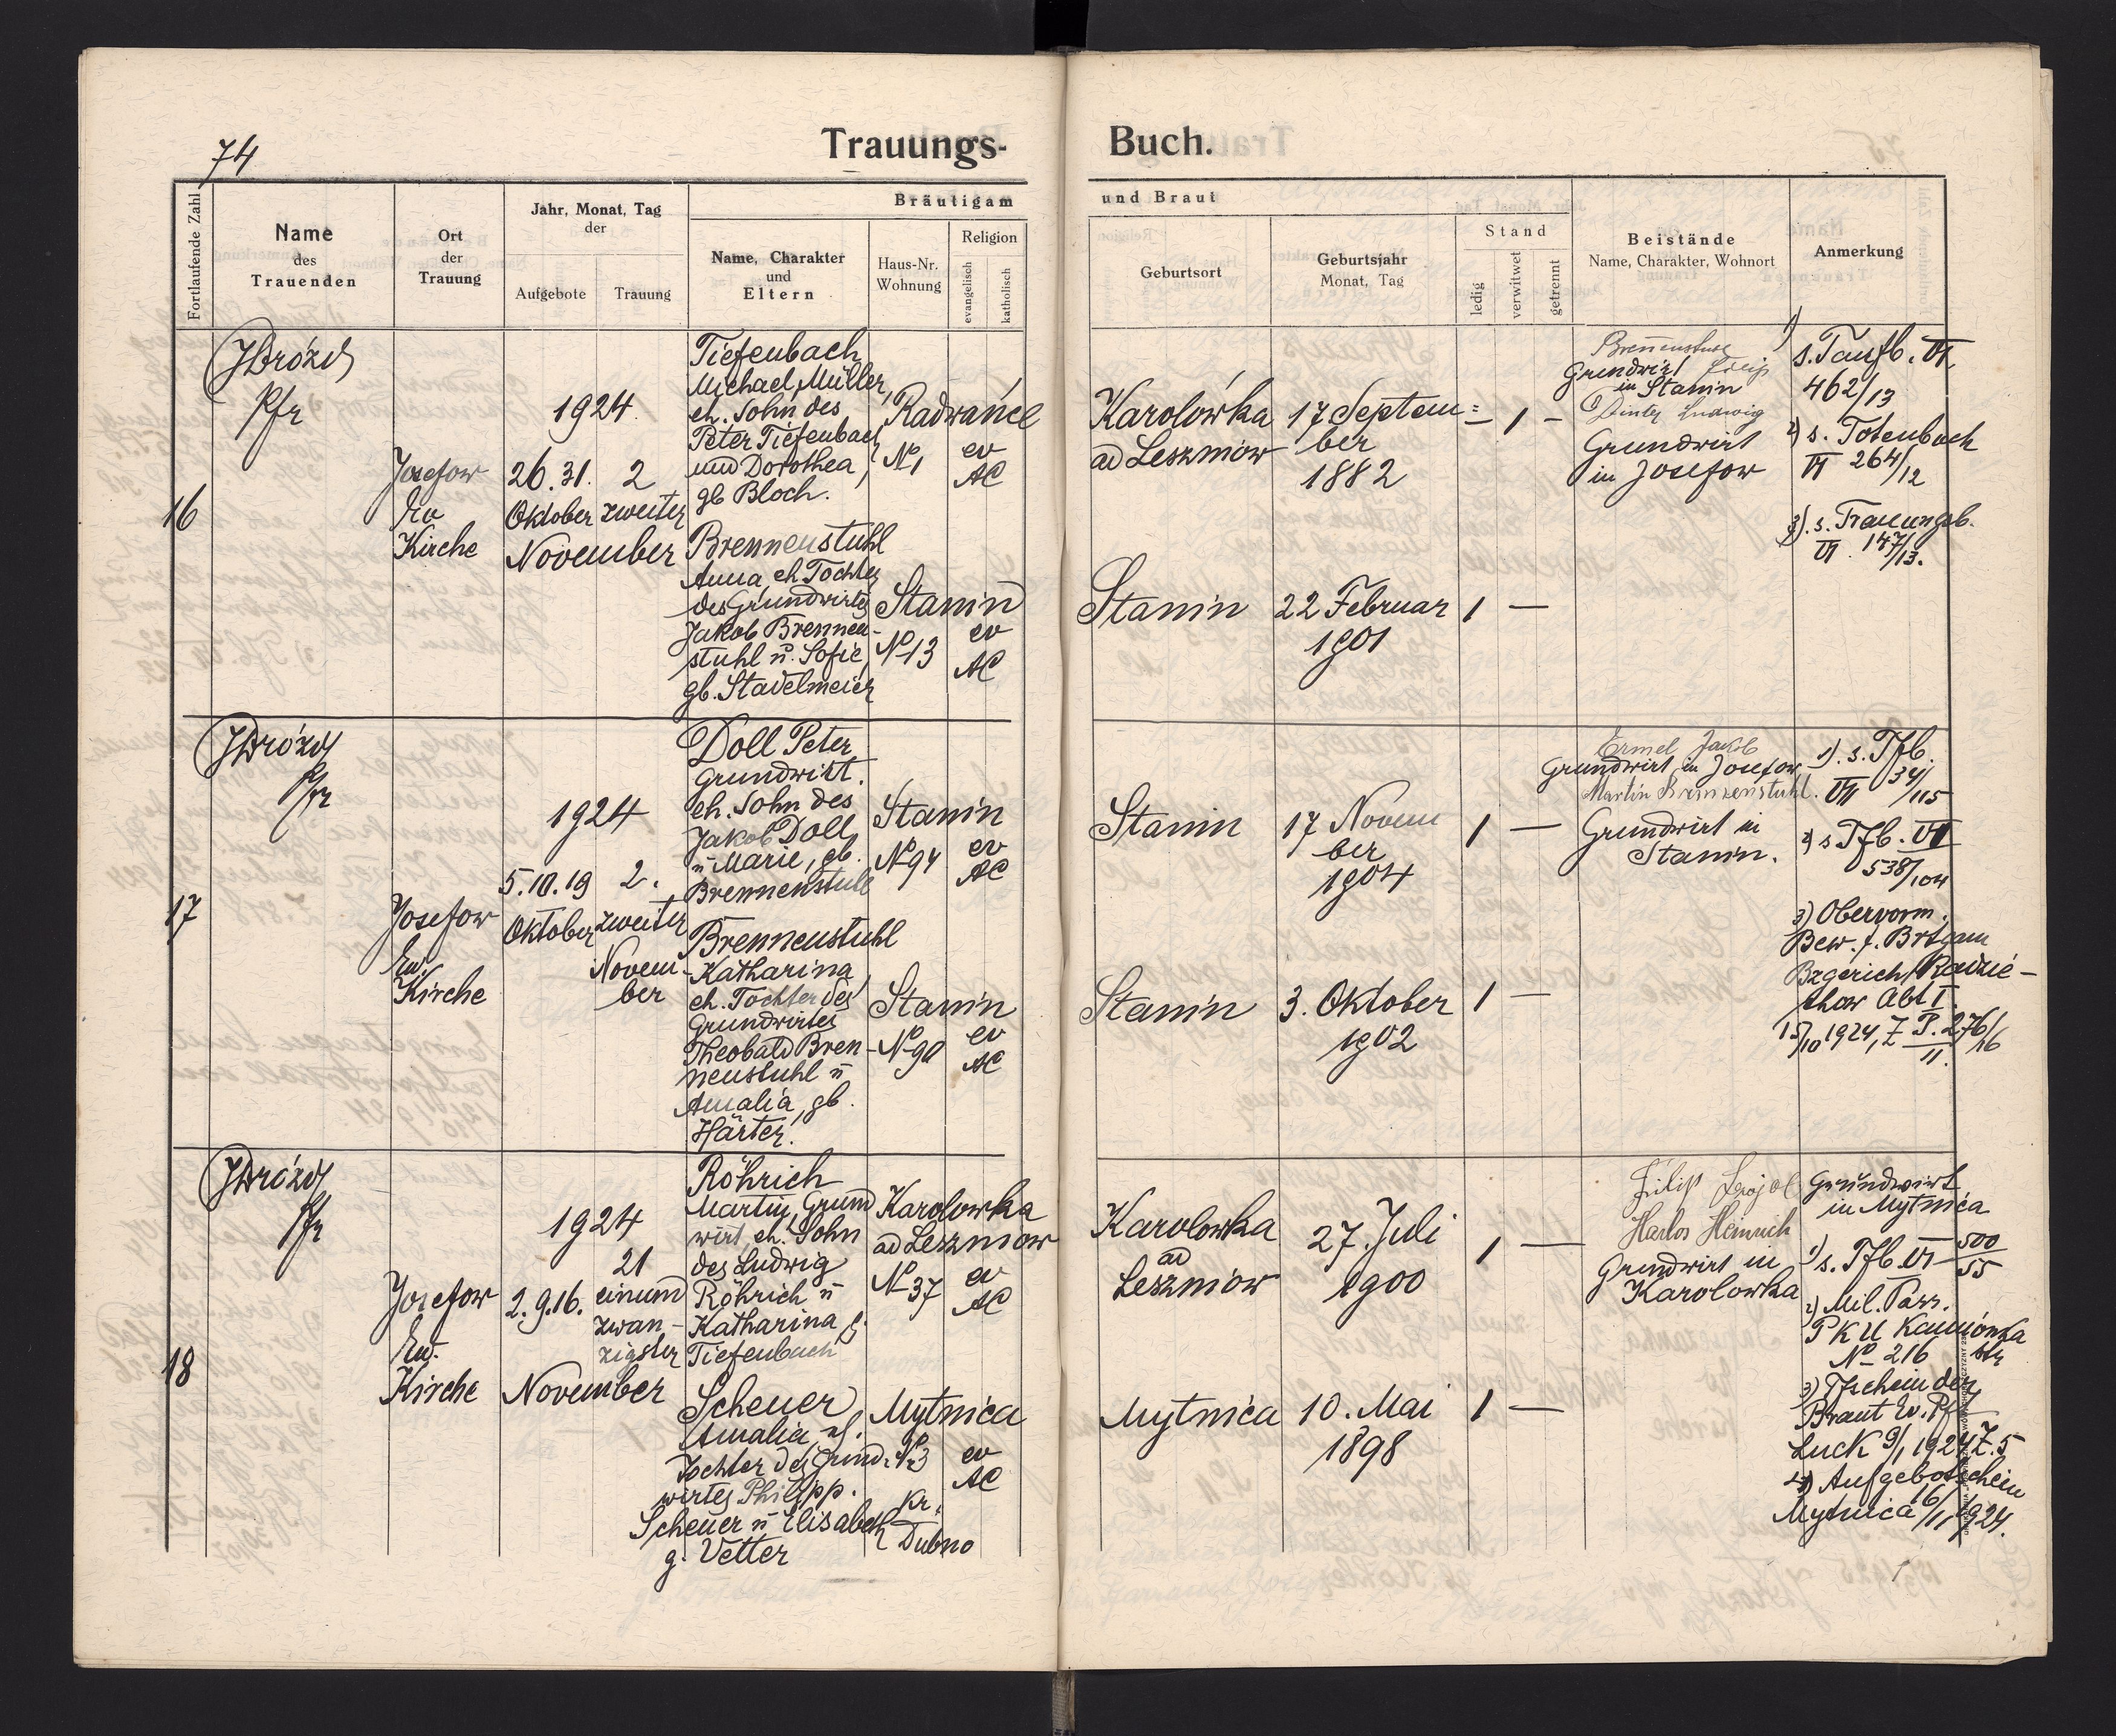 74
Trauungs-
Buch.
Fortlaufende Zahl
Name
des
Trauenden
Ort
der
Trauung
Jahr, Monat, Tag
der
Aufgebote
Trauung
Bräutigam
Name, Charakter
und
Eltern
Haus-Nr.
Wohnung
Religion
evangelisch
katholisch
und Braut
Geburtsort
Geburtsjahr
Monat, Tag
Stand
ledig
verwitwet
getrennt
Beistände
Name, Charakter, Wohnort
Anmerkung
16
JDrózd
Pfr
Josefow
Ev
Kirche
1924
26. 31. 2
Oktober zweiter
November
Tiefenbach
Michael, Müller,
eh. Sohn des
Peter Tiefenbach
und Dorothea,
gb Bloch.
Radwańce
No 1
ev
AC
Karolówka
ad Leszniow
17 Septem=
ber
1882
– 1 –
Grundwirt
in Stanin
Ludwig
Grundwirt
in Josefow
1) s. Taufb. VI,
462/13
2) s. Totenbuch
VI 264/12
3). s. Trauungsb.
VI. 147/13.
Brennenstuhl
Anna, eh. Tochter
des Grundwirtes
Jakob Brennen-
stuhl u. Sofie,
gb. Stadelmeier
Stanin
No 13
ev
AC
Stanin
22 Februar
1901
1 –
17
JDrózd
Pfr
Josefow
Ev.
Kirche
1924
5. 10. 19 2.
Oktober zweiter
Novem-
ber
Doll Peter
Grundwirt.
eh. Sohn des
Jakob Doll
u Marie, gb.
Brennenstuhl
Stanin
No 94
ev
AC
Stanin
17 Novem
ber
1904
1 –
Ermel Jakob
Grundwirt in Josefow
Martin Brennenstuhl.
Grundwirt in
Stanin.
1). s. Tfb.
VII 34/115
2) s Tfb. VI
538/104
3) Obervorm.
Bew. f. Brtgam
Bzgerich Radzie-
chow Abt I.
15/10 1924, Z P. 276/16
11.
Brennenstuhl
Katharina,
eh. Tochter des
Grundwirtes
Theobald Bren-
nenstuhl u
Amalia, gb.
Härter.
Stanin
No 90
ev
AC
Stanin
3. Oktober
1902
1 –
18
JDrózd
Pfr
Josefow
Ev.
Kirche
1924
21
2. 9. 16. einund
zwan-
zigster
November
Röhrich
Martin, Grund
wirt, eh. Sohn
des Ludwig
Röhrich u
Katharina g.
Tiefenbach
Karolowka
ad Leszniow
No 37
ev
AC
Karolowka
ad
Leszniow
27. Juli
1900
1 –
Filip
Harlos Heinrich
Grundwirt in
Karolowka
Grundwirt
in Mytnica
1) s. Tfb. VI – 500/55
2) Mil. Pass.
P K U Kamionka
No 216 str
3) Tfschein der
Braut Ev. Pf
Luck 9/1 1924 Z. 5
4) Aufgebotschein
Mytnica 16/11 1924.
Scheuer
Amalia, eh.
Tochter des Grund-
wirtes Philipp.
Scheuer u Elisabeth
g. Vetter
Mytnica
No 3
ev
AC
Kr.
Dubno
Mytnica
10. Mai
1898
1 –